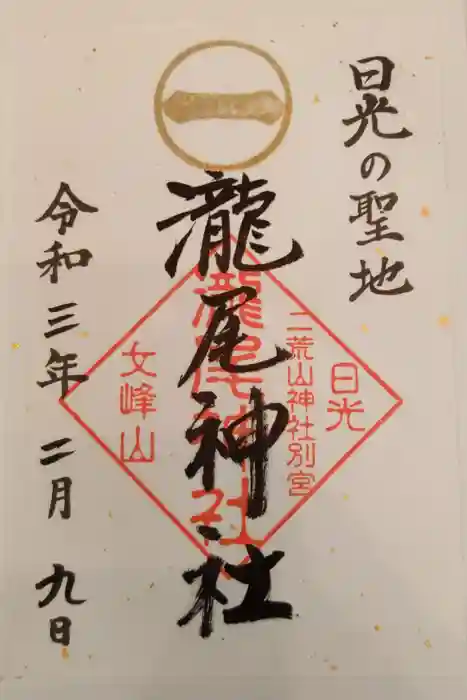 日光の聖地
一
瀧尾神社
日光
二荒山神社別宮
瀧尾神社
女峰山
令和三年二月九日